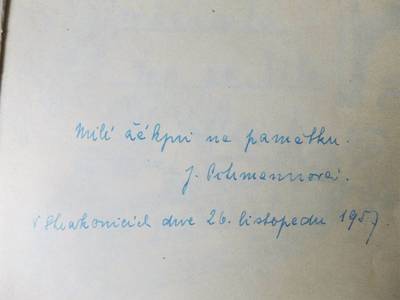 Milé žákyni na památku.
J. 
V Strakonicích dne 26. listopadu 1957.